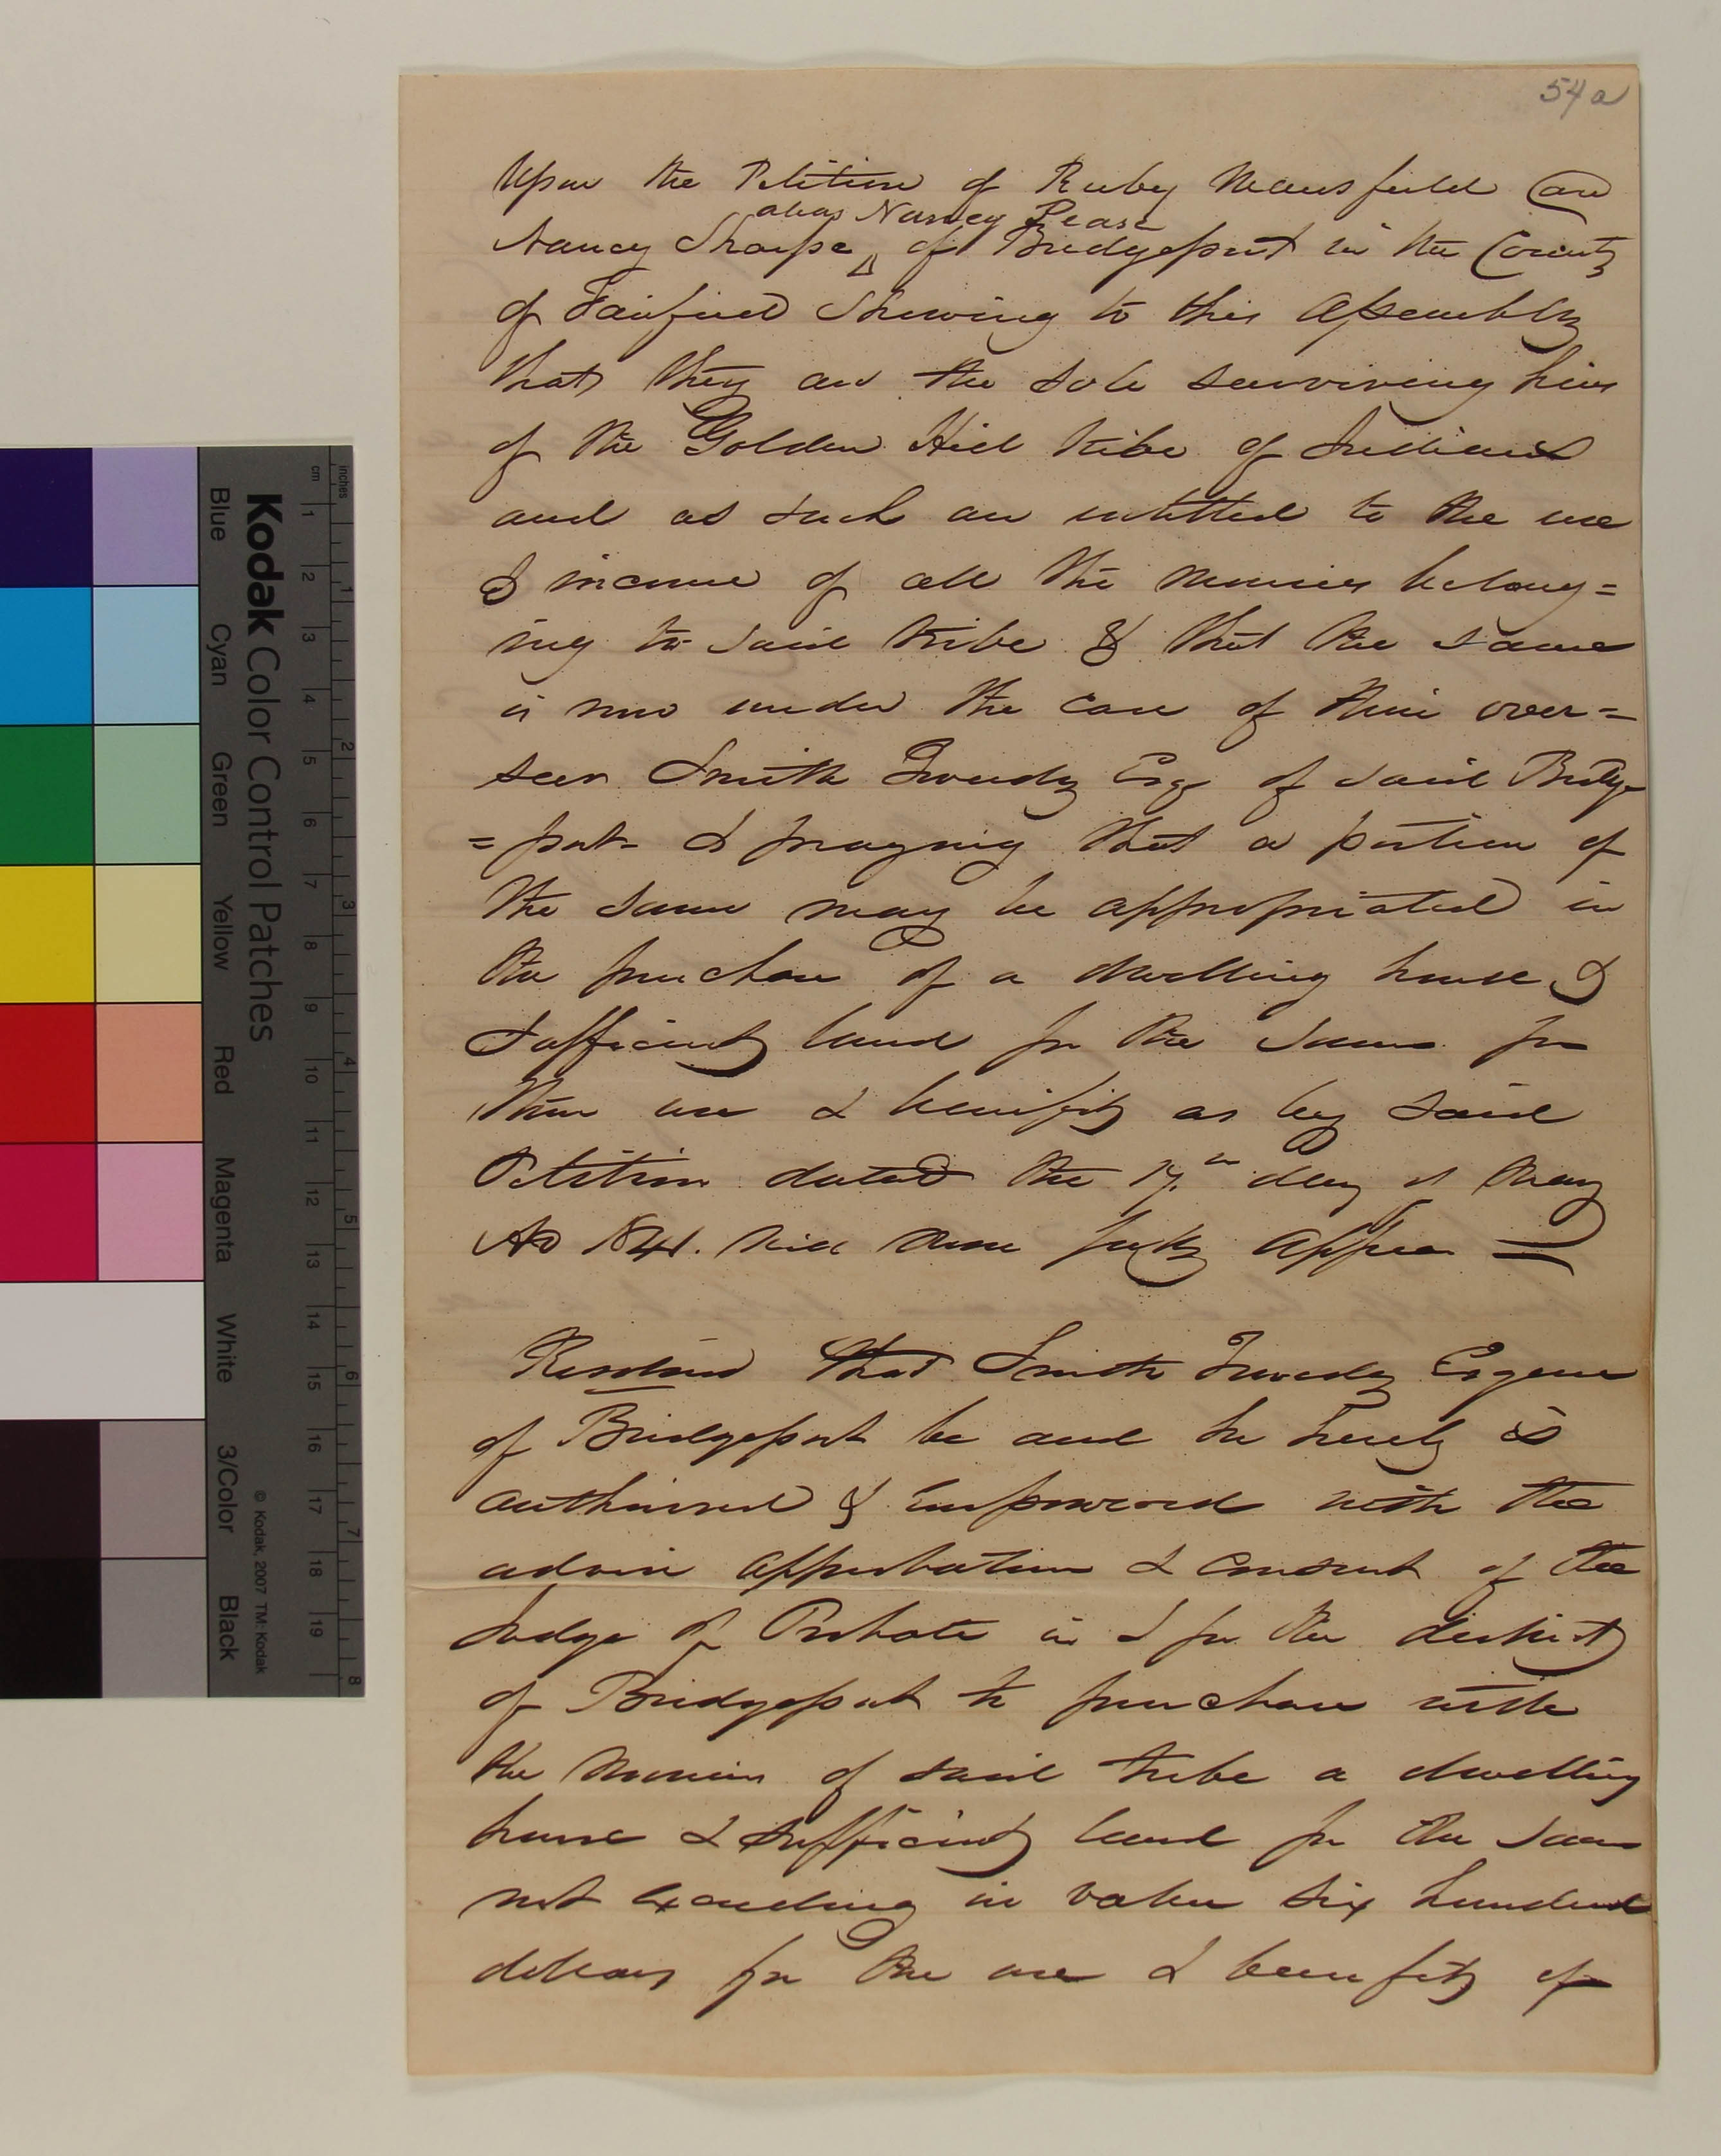 54a
Upon the Petition of Ruby Mansfield and
alias Nancy Pease
Nancy Sharpe of Bridgeport in the County
of Fairfield Shewing to this Assembly
that they are the sole surviving heirs
of the Golden Hill tribe of Indians
and as such are intitled to the use
& income of all the monies belong=
ing to said tribe & that the same
is now under the care of their over=
seer Smith Tweedy Esq of said Bridge
=port & praying that a portion of
the same may be appropriated in
the purchase of a dwelling house &
sufficient land for the same for
their use & benifit as by said
Petition dated the 17th day of May
AD 1841. will more fully appear
Resolved that Smith Tweedy Esquire
of Bridgeport be and he hereby is
authorised & empowered with the
advice approbation & consent of the
Judge of Probate in & for the district
of Bridgeport to purchase with
the monies of said tribe a dwelling
house & sufficient land for the same
not exceeding in value six hundred
dollars for the use & benefit of
inches
cm
Kodak Color Control Patches
© Kodak, 2007 TM: Kodak
Blue
Cyan
Green
Yellow
Red
Magenta
White
3/Color
Black
1 2 3 4 5 6 7 8 9 10 11 12 13 14 15 16 17 18 19
1 2 3 4 5 6 7 8